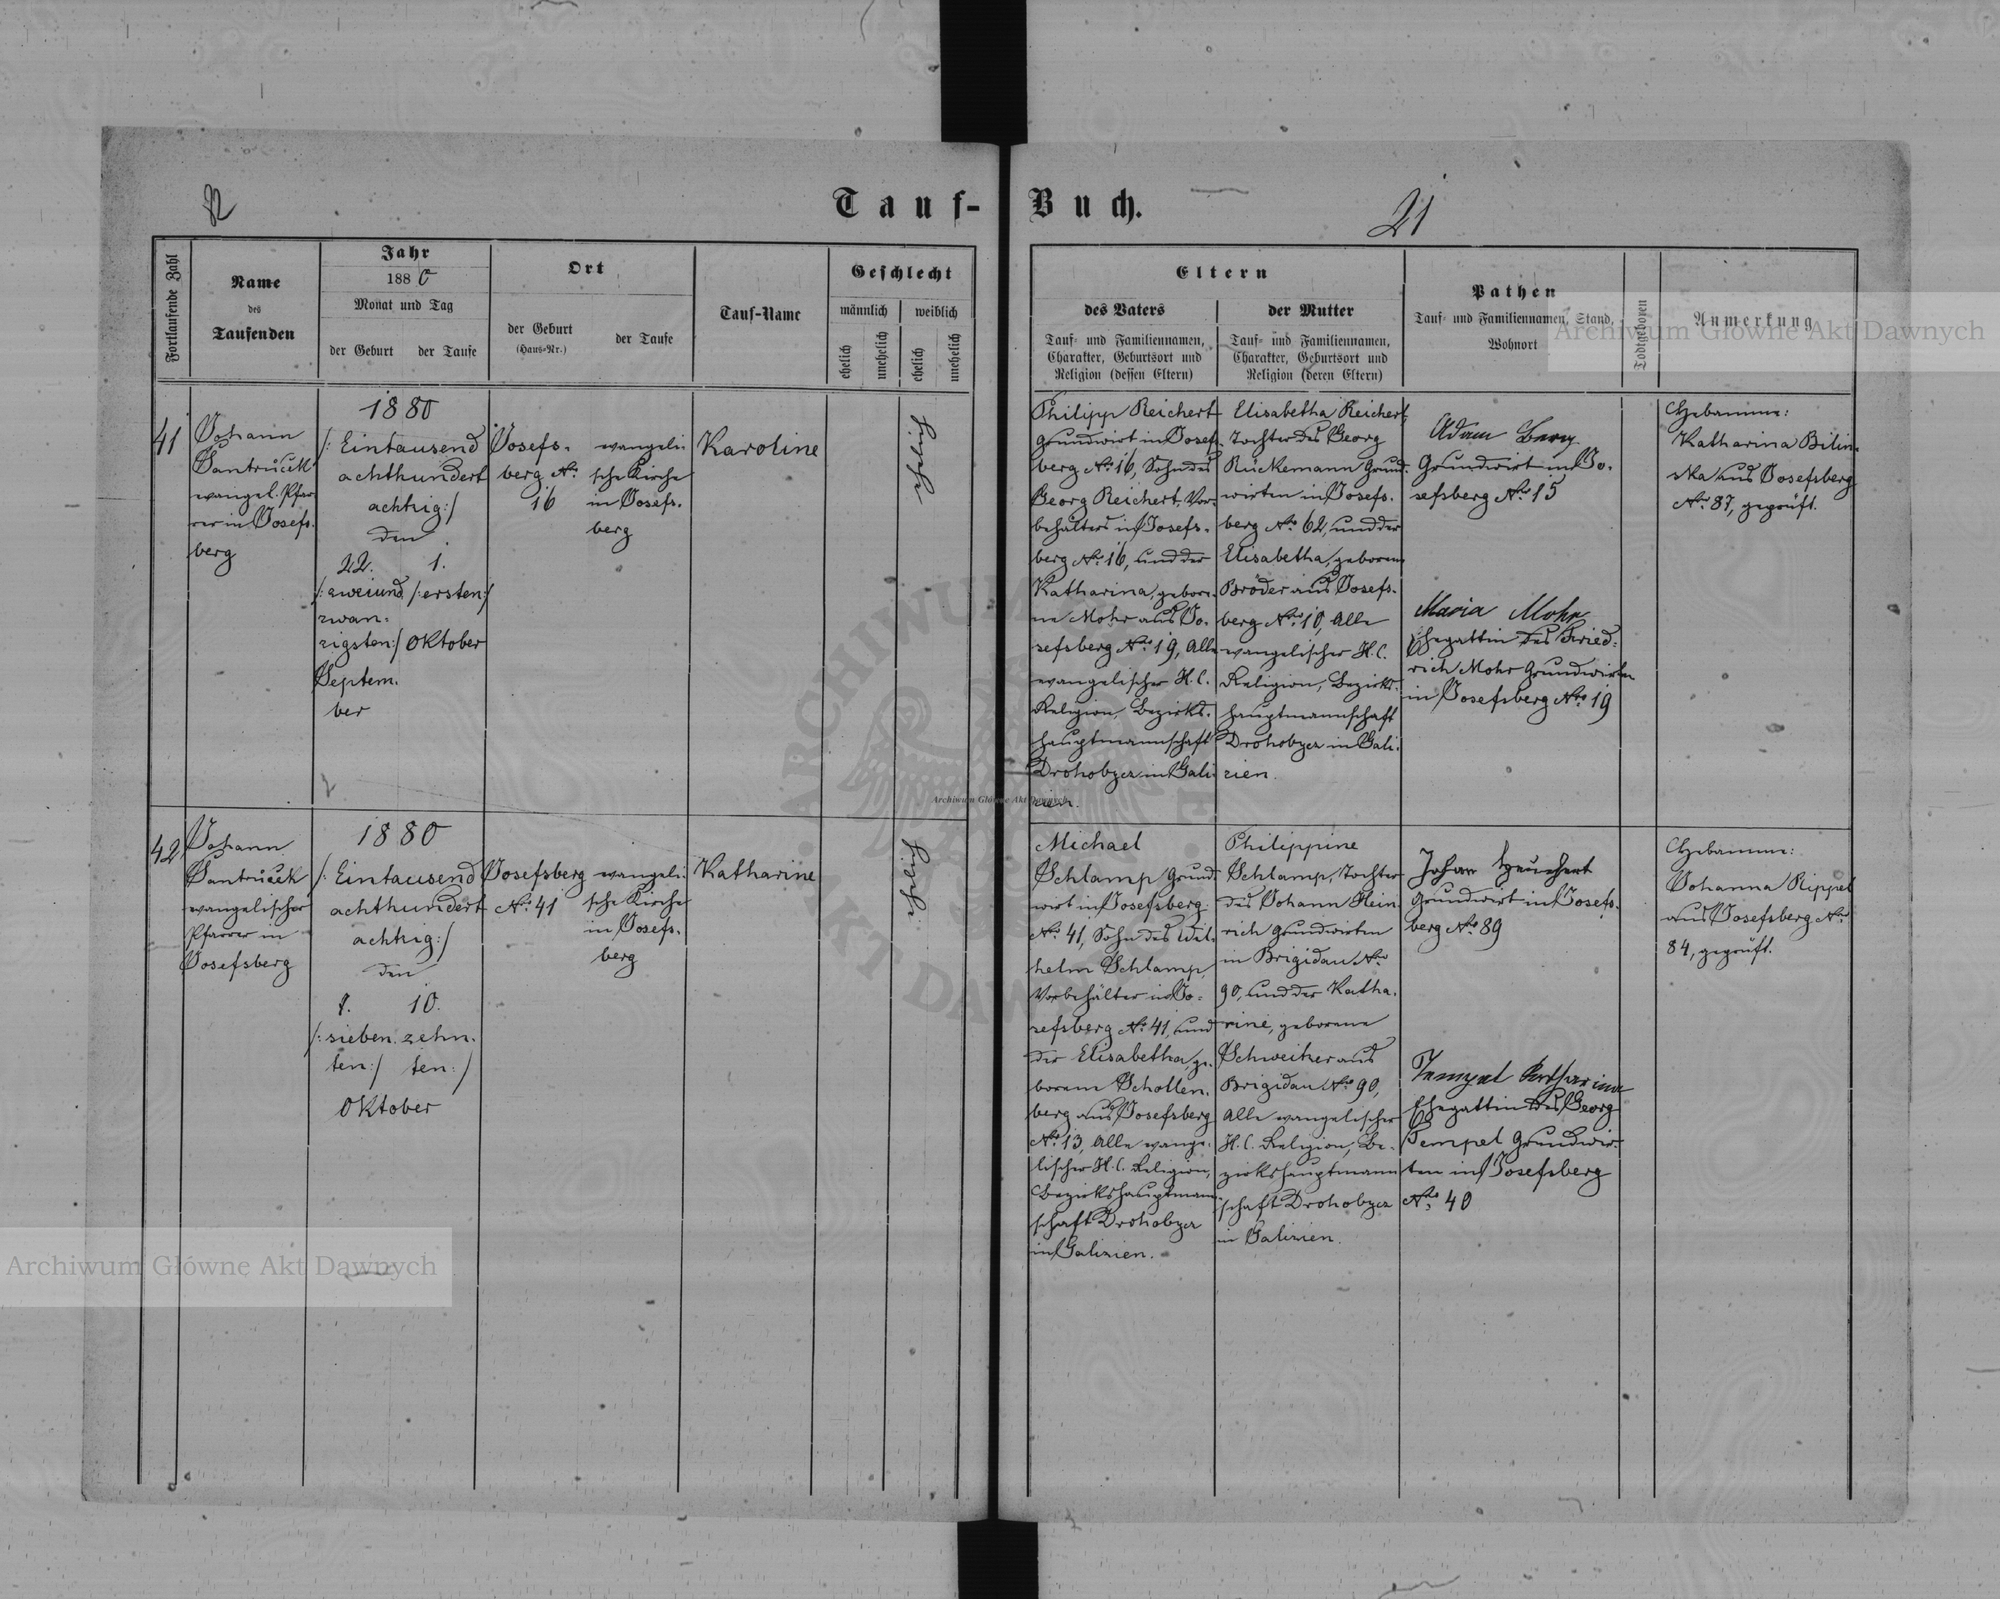 Tauf-Buch.
21
Fortlaufende Zahl
Name
des
Taufenden
Jahr
1880
Monat und Tag
der Geburt
der Taufe
Ort
der Geburt
(Haus-Nr.)
der Taufe
Tauf-Name
Geschlecht
männlich
weiblich
ehelich
unehelich
ehelich
unehelich
Eltern
des Vaters
Tauf- und Familiennamen,
Charakter, Geburtsort und
Religion (dessen Eltern)
der Mutter
Tauf- und Familiennamen,
Charakter, Geburtsort und
Religion (deren Eltern)
Pathen
Tauf- und Familiennamen, Stand,
Wohnort
Todtgeboren
Anmerkung
41
Johann
Santrůček
evangel. Pfar-
rer in Josefs-
berg
1880
/: Eintausend
achthundert
achtzig :/
den
22. 1.
/: zweiund /: ersten :/
zwan-
zigsten :/ Oktober
Septem-
ber
Josefs-
berg No
16
evangeli-
sche Kirche
in Josefs-
berg
Karoline
ehelich
Philipp Reichert
Grundwirt in Josefs-
berg No 16, Sohn des
Georg Reichert, Vor-
behälters in Josefs-
berg No 16, und der
Katharina, gebore-
ne Mohr aus Jo-
sefsberg No 19, Alle
evangelischer H. C.
Religion, Bezirks-
hauptmannschaft
Drohobycz in Gali-
zien.
Elisabetha Reichert,
Tochter des Georg
Rückemann Grund-
wirten in Josefs-
berg No 62, und der
Elisabetha, geborene
Bröder aus Josefs-
berg No 10, Alle
evangelischer H. C.
Religion, Bezirks-
hauptmannschaft
Drohobycz in Gali-
zien.
Adam
Grundwirt in Jo-
sefsberg No 15
Maria Mohr
Ehegattin des Fried-
rich Mohr Grundwirten
in Josefsberg No 19
Hebamme:
Katharina Bilin-
ska aus Josefsberg
No 87, geprüft.
42
Johann
Santrůček
evangelischer
Pfarrer in
Josefsberg
1880
/: Eintausend
achthundert
achtzig :/
den
7. 10.
/: sieben- zehn-
ten :/ ten :/
Oktober
Josefsberg
No 41
evangeli-
sche Kirche
in Josefs-
berg
Katharine
ehelich
Michael
Schlamp Grund-
wirt in Josefsberg
No 41, Sohn des Wil-
helm Schlamp,
Vorbehälter in Jo-
sefsberg No 41, und
der Elisabetha, ge-
borene Schollen-
berg aus Josefsberg
No 13, Alle evange-
lischer H. C. Religion,
Bezirkshauptmann-
schaft Drohobycz
in Galizien.
Philippine
Schlamp, Tochter
des Johann Hein-
rich Grundwirten
in Brigidau No
90, und der Katha-
rine, geborene
Schweitzer aus
Brigidau No 90,
Alle evangelischer
H. C. Religion, Be-
zirkshauptmann-
schaft Drohobycz
in Galizien.
Johan
Grundwirt in Josefs-
berg No 89
Tempel Katharina
Ehegattin des Georg
Tempel Grundwir-
ten in Josefsberg
No 40
Hebamme:
Johanna Rippel
aus Josefsberg No
84, geprüft.
Archiwum Główne Akt Dawnych
Archiwum Główne Akt Dawnych
Archiwum Główne Akt Dawnych